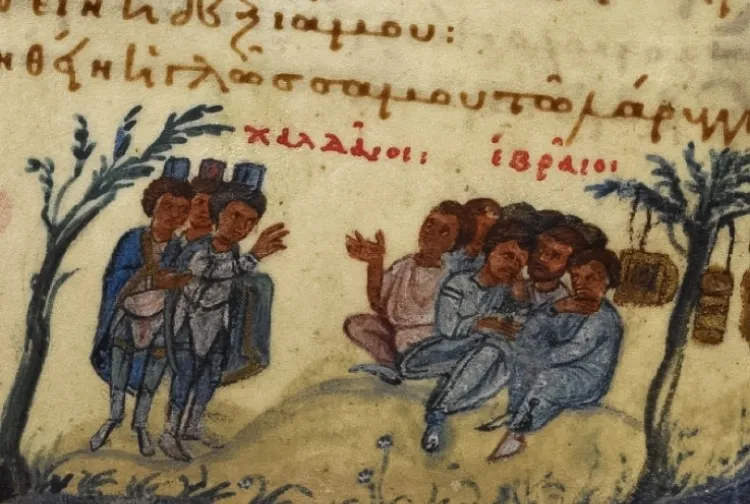 ἡ δεξιά μου:
ηθείη ἡ γλῶσσα μου τῶ λάρυγγ
χαλδαῖοι: ἑβραῖοι